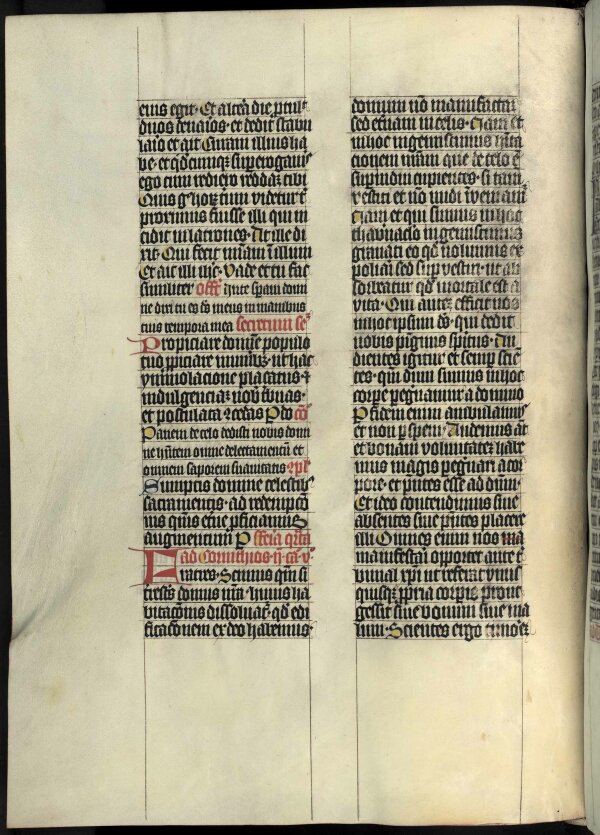 eius egit · Et altera die protul
duos denarios · et dedit stabu
lario et ait Curam illius ha
be · et quodcumque supererogaueris
ego cum rediero reddam tibi
Quis ergo horum trium videtur tibi
proximus fuisse illi qui in
cidit in latrones · At ille di
xit · Qui fecit misericordiam in illum
Et ait illi ihesus · Vade et tu fac
similiter offerenda In te speraui domi
ne dixi tu es deus meus in manibus
tuis tempora mea secretum se
Propiciare domine populo
tuo propiciare muneribus ut hac
ymmolacione placatus et
indulgenciam nobis tribuas ·
et postulata concedas Per do co
Panem de celo dedisti nobis domi
ne habentem omne delectamentum et
omnem saporem suauitatis
Sumptis domine celestibus
sacramentis · ad redempcio
nis eterne proficiamus
augmentum Per feria quarta
ad Corinthios · ii · ca · v ·
Fratres · Scimus quoniam si
terrestris domus nostra huius ha
bitacionis dissoluatur · quod edi
ficacionem ex deo habemus ·
domum non manufactam
sed eternam in celis · Nam et
in hoc ingemiscimus habita
cionem nostram que de celo est
superindui cupientes · si tamen
vestiti et non nudi inueniamur
Nam et qui sumus in hoc
tabernaculo ingemiscimus
grauati eo quod nolumus ex
poliari sed superuestiri · ut ab
sorbeatur quod mortale est a
vita · Qui autem efficit nos
in hoc ipsum deus · qui dedit
nobis pignus spiritus · Au
dientes igitur et semper scien
tes · qui dum sumus in hoc
corpore peregrinamur a domino
Per fidem enim ambulamus
et non per speciem · Audemus autem
et bonam voluntatem habe
mus magis peregrinari a cor
pore · et presentes esse ad dominum ·
Et ideo contendimus siue
absentes siue presentes placere
illi Omnes enim nos ma
manifestari oportet ante tri
bunal christi ut referat vnus
quisque propria corporis prout
gessit siue bonum siue ma
lum · Scientes ergo timorem